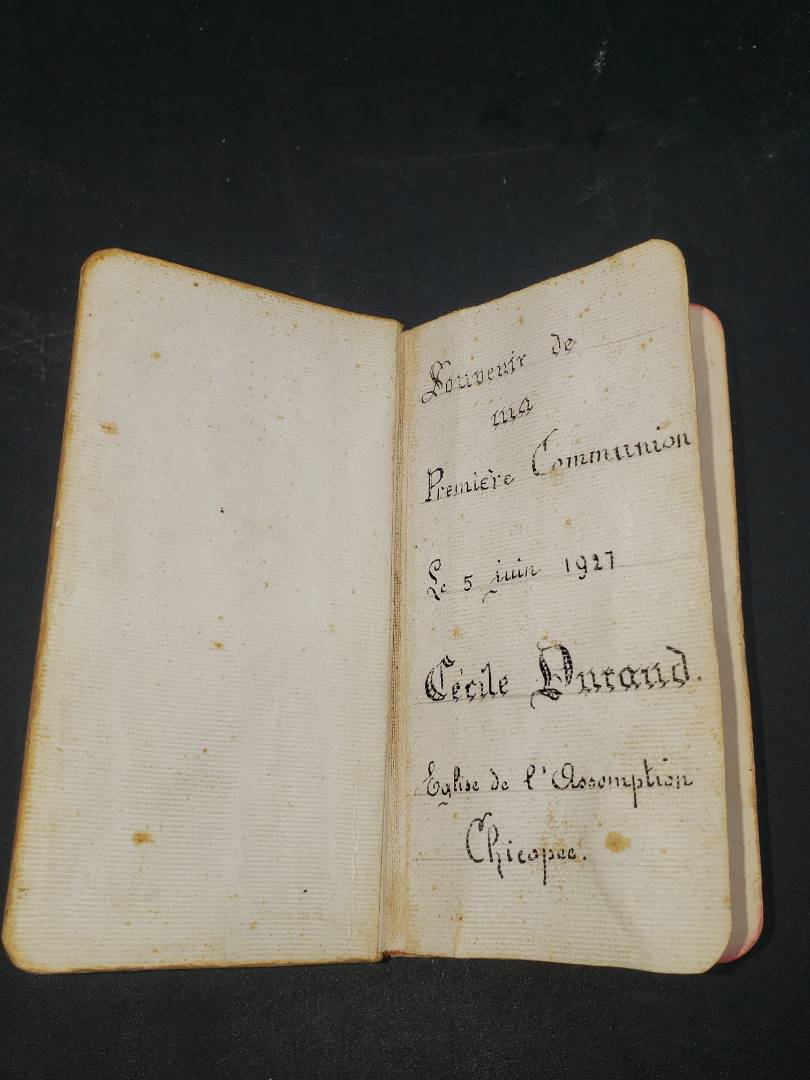 Souvenir de
ma
Première Communion
Le 5 juin 1927
Cécile Durand.
Eglise de l'Assomption
Chicopee.